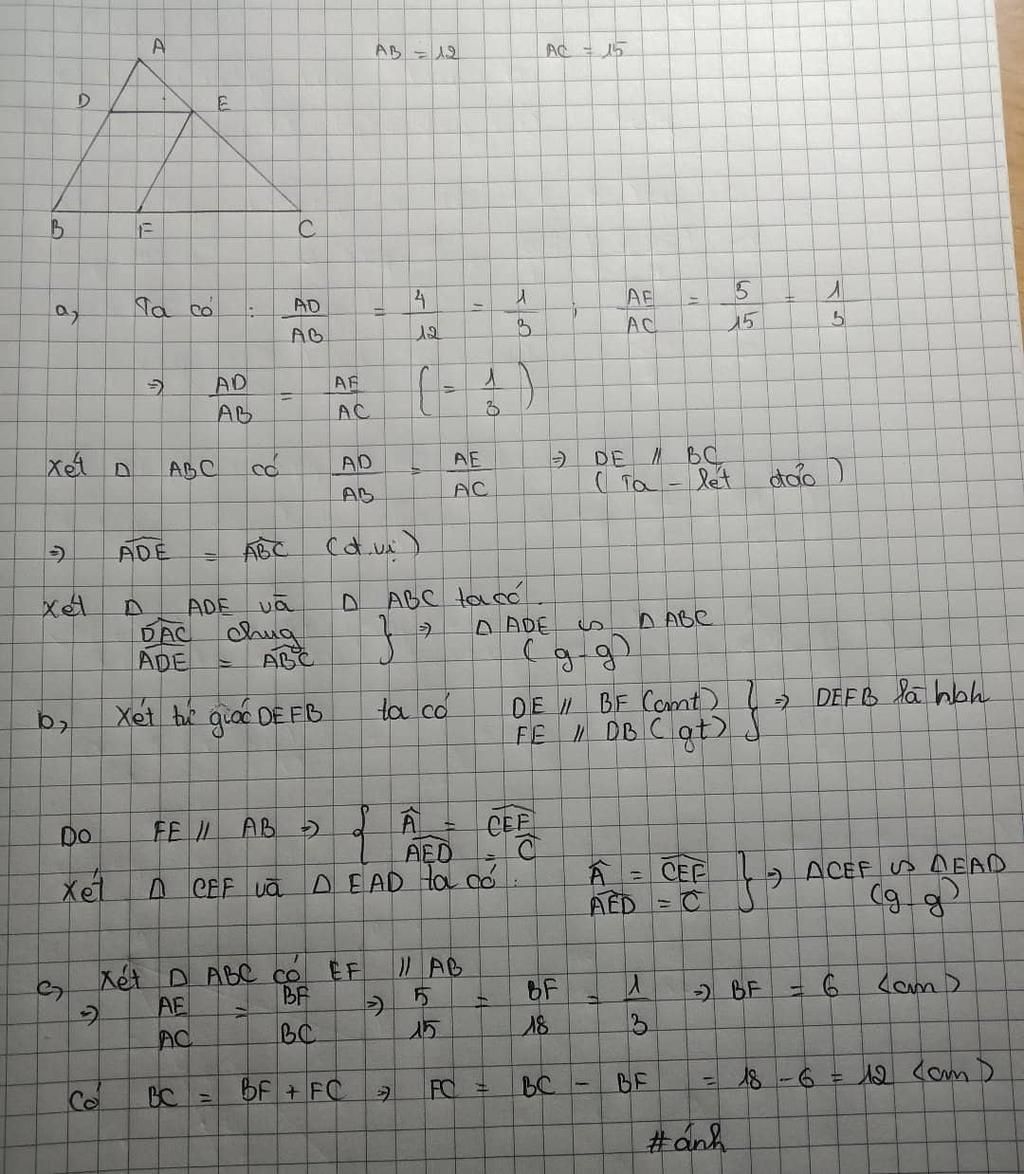 A
AB = 12 AC = 15
D E
B F C
a, Ta có : AD/AB = 4/12 = 1/3 ; AE/AC = 5/15 = 1/3
=> AD/AB = AE/AC ( = 1/3 )
Xét Δ ABC có AD/AB = AE/AC => DE // BC
( Ta - lét đảo )
=> ADE = ABC (đ.vị)
Xét Δ ADE và Δ ABC ta có
DAC chug } => Δ ADE ∽ Δ ABC
ADE = ABC ( g-g)
b, Xét tứ giác DEFB ta có DE // BF (cmt) } => DEFB là hbh
FE // DB ( gt)
Do FE // AB => { Â = CEF
AED = Ĉ
Xét Δ CEF và Δ EAD ta có : Â = CEF } => ΔCEF ∽ ΔEAD
AED = Ĉ (g-g)
c, Xét Δ ABC có EF // AB
=> AE/AC = BF/BC => 5/15 = BF/18 = 1/3 => BF = 6 (cm)
Có BC = BF + FC => FC = BC - BF = 18 - 6 = 12 (cm)
#ánh